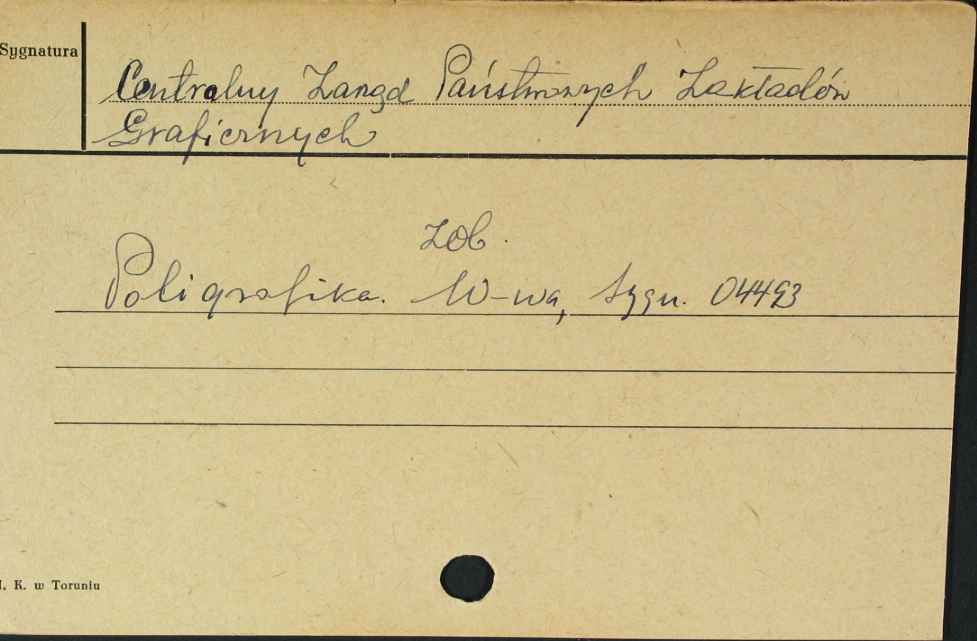 Sygnatura
Centralny Zarząd Państwowych Zakładów
Graficznych
zob.
Poligrafika. W-wa, Sygn. 04493
K. w Toruniu